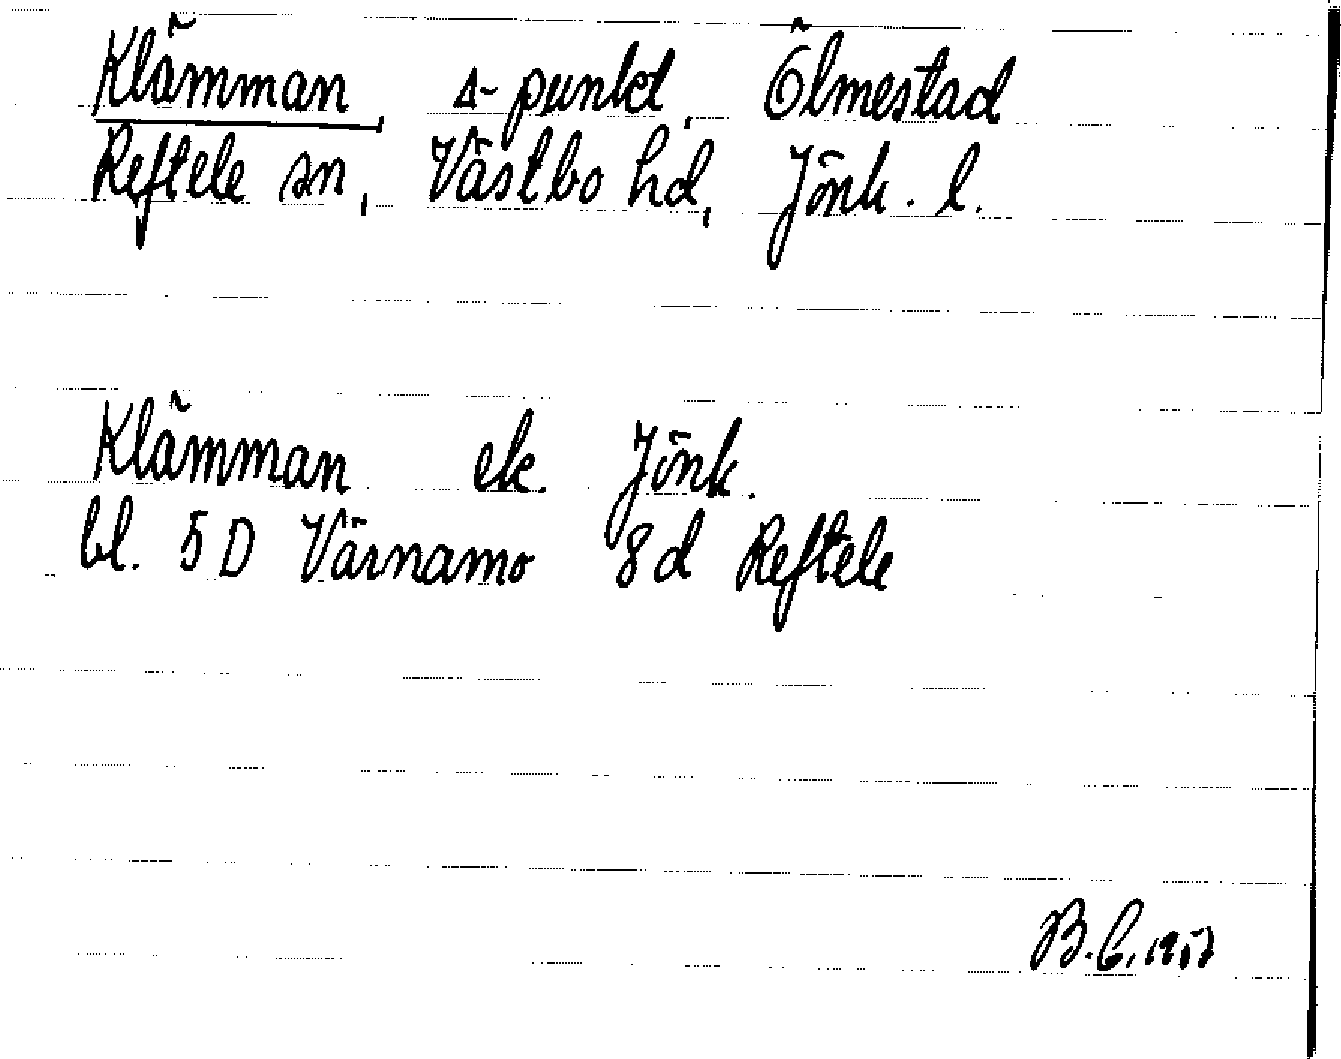 Klämman, Δ-punkt, Ölmestad
Reftele sn, Västbo hd, Jönk. l.
Klämman ek. Jönk.
bl. 5 D Värnamo 8 d Reftele
B.C.